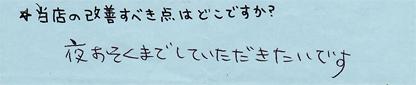 *当店の改善すべき点はどこですか?
夜おそくまでしていただきたいです